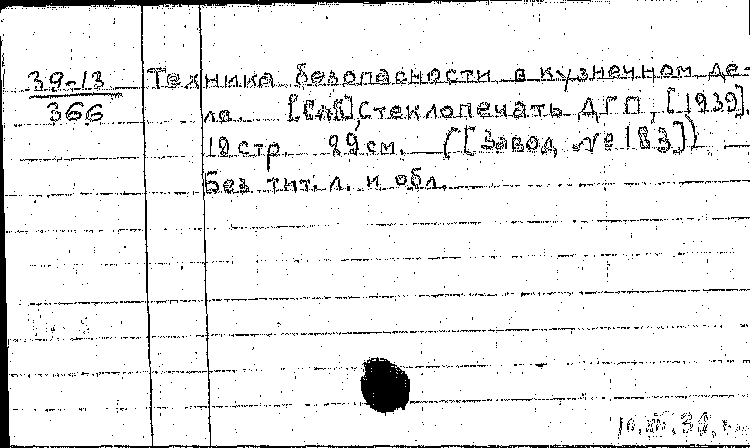 39-13
366
Техника безопасности в кузнечном де-
ле. Стеклопечать ДГП, [1939].
12 стр. 29 см. ([Завод № 183])
Без тит. л. и обл.